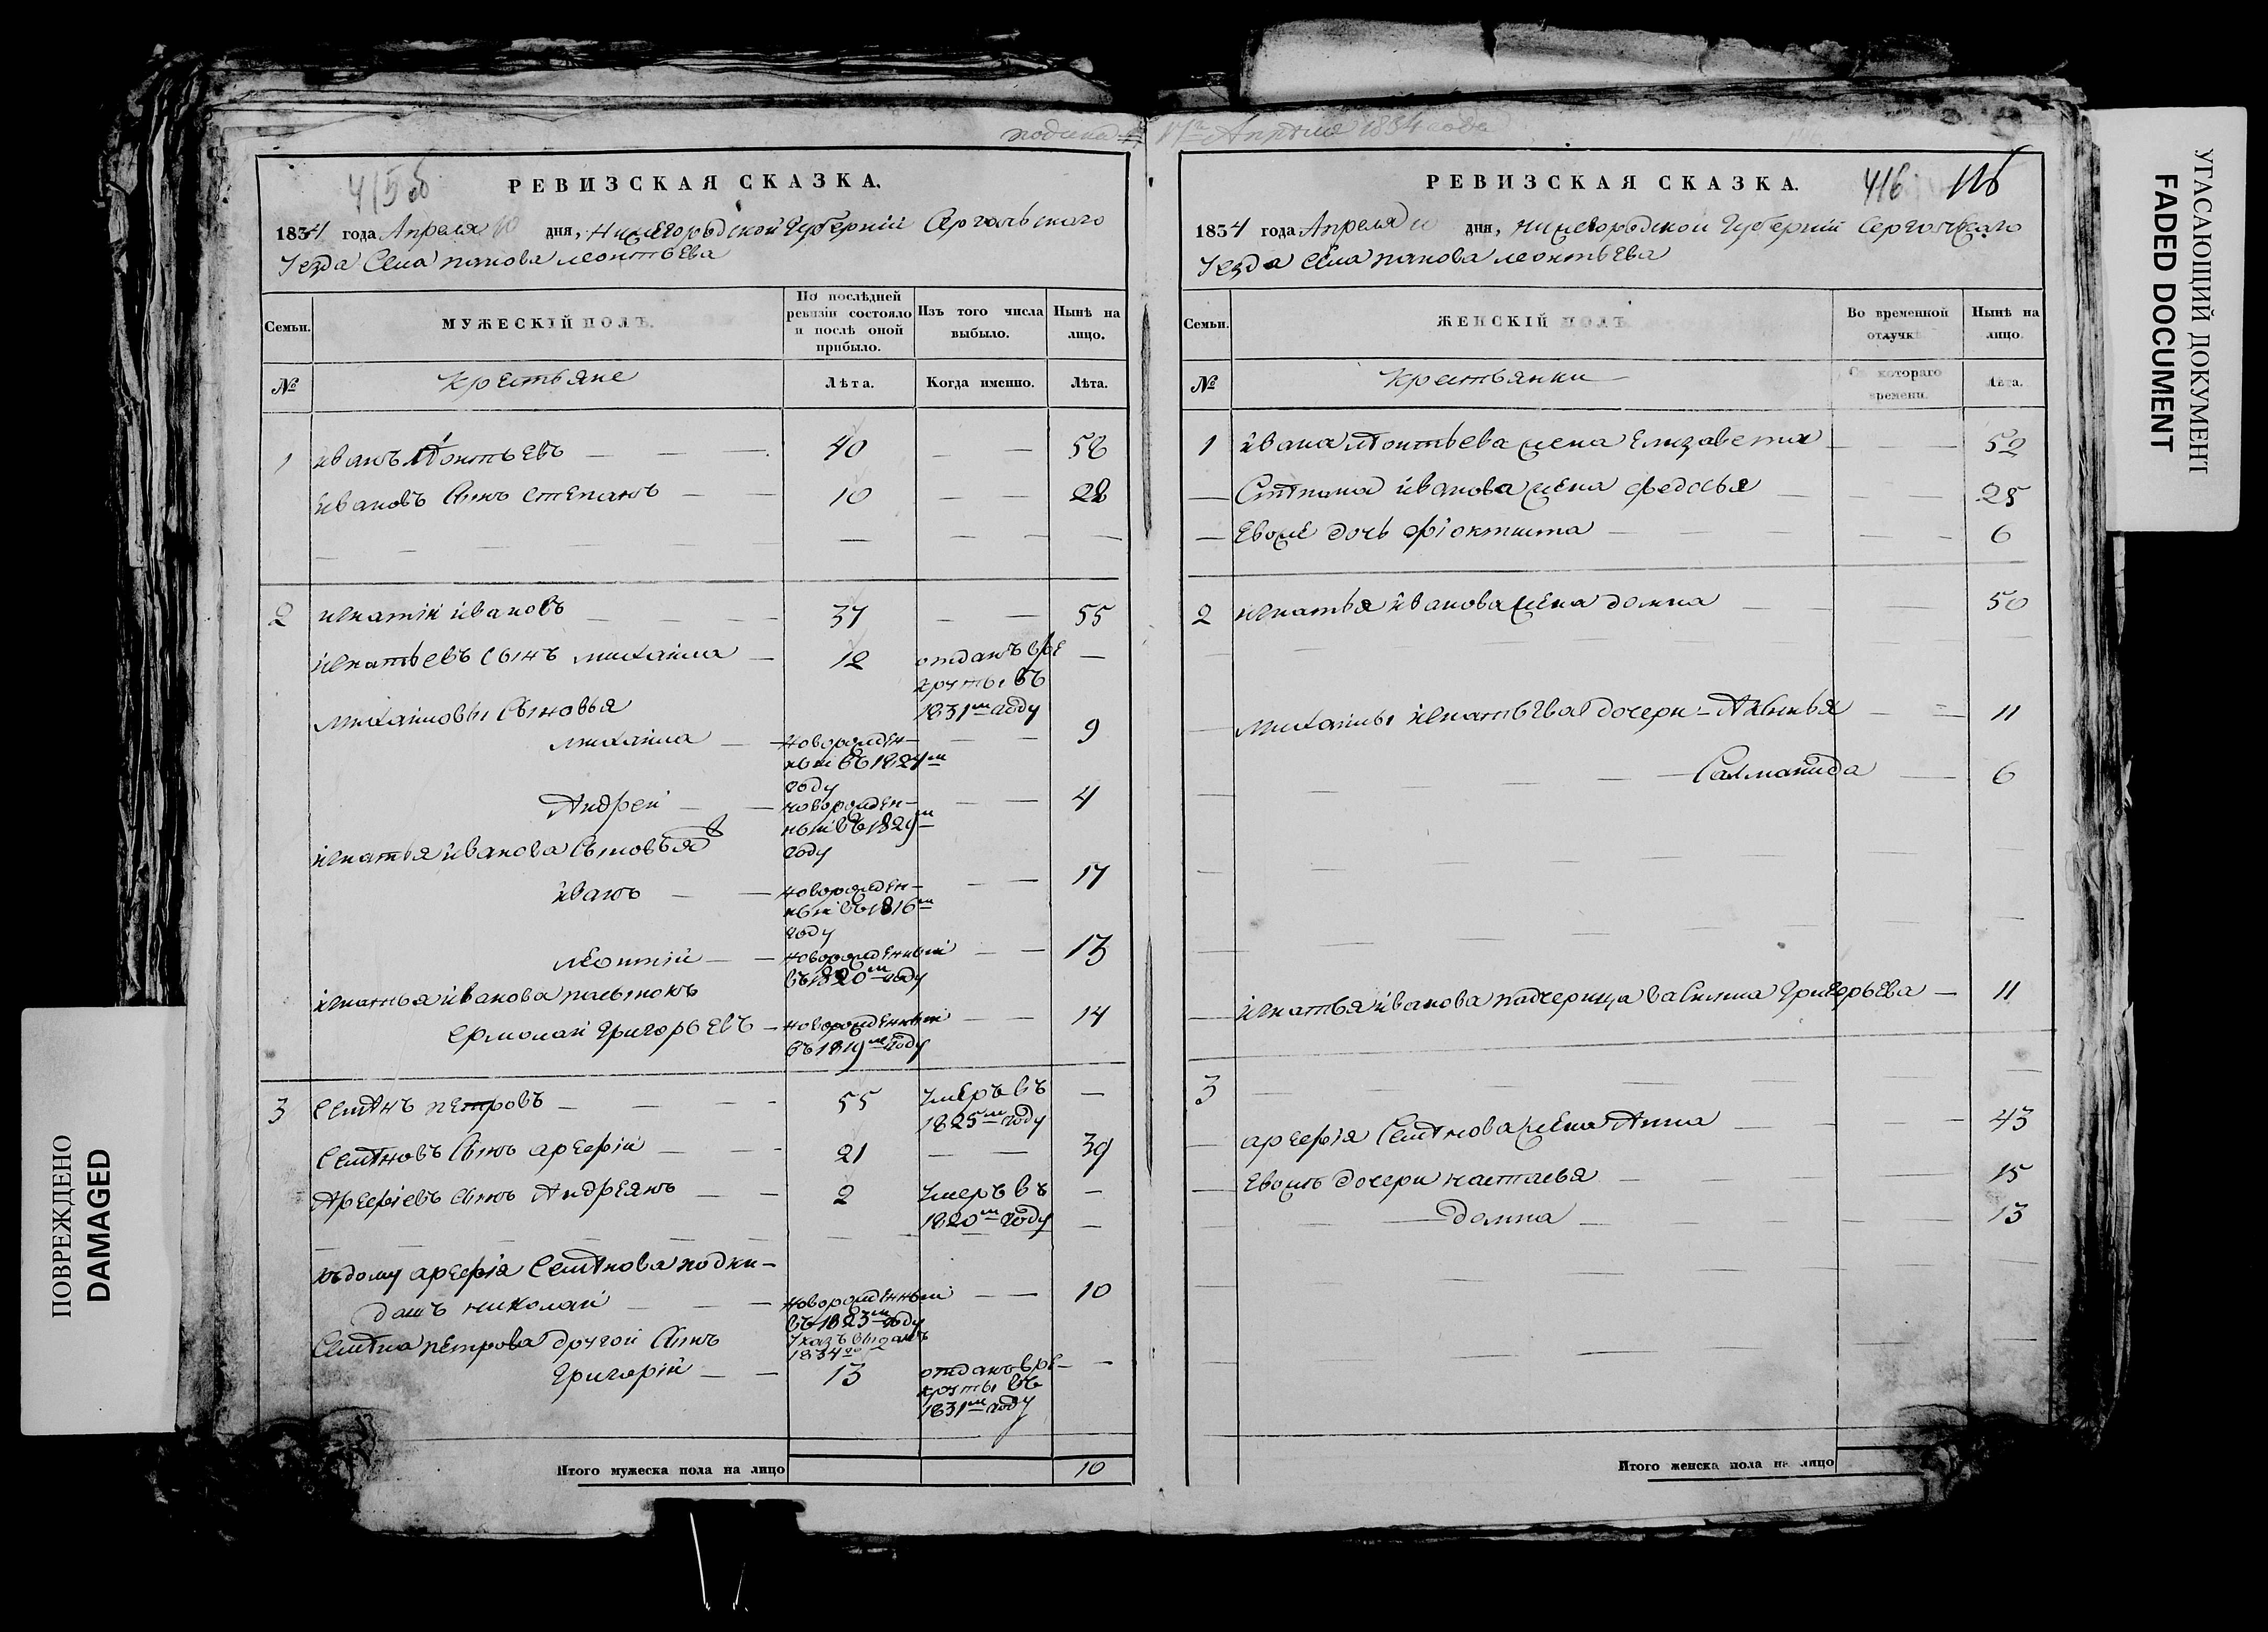 подана 17го Апреля 1834 года
415 об
РЕВИЗСКАЯ СКАЗКА.
1834 года Апреля 10 дня, Нижегородской Губернiи Сергачьского
Уезда Села панова леонтьева
Семьи. МУЖЕСКIЙ ПОЛЪ. По послѣдней ревизiи состояло и послѣ оной прибыло. Изъ того числа выбыло. Нынѣ на лицо.
№ Крестьяне Лѣта. Когда именно. Лѣта.
1 иванъ лѣонтьевъ — — — 40 — — 58
ивановъ сынъ степанъ — — 10 — — 28
2 игнатiй ивановъ — — — — 37 — — 55
игнатьевъ сынъ михаила — 12 отданъ в ре
круты въ
1831м году —
михаиловы сыновья
михаила — новорожден-
ный въ 1824м
году — — 9
Андрей — — новорожден-
ный въ 1829м
году — — 4
игнатья иванова сыновья
иванъ — — новорожден-
ный въ 1816м
году — — 17
леонтiй — — новорожденный
въ 1820м году — — 13
игнатья иванова пасынокъ
ермолай григорьевъ — новорожденный
въ 1819м году — — 14
3 семѣнъ петровъ — — — 55 умеръ въ
1825м году —
семѣновъ сынъ арефiй — — — 21 — — 39
Арефiевъ сынъ Андреянъ — — 2 умеръ въ
1820м году —
къ дому арефiя семѣнова подки-
дышъ николай — — — новорожденный
въ 1823м году — — 10
указъ выданъ
1834го
семѣна петрова другой сынъ
григорiй — — 13 отданъ в ре-
круты въ
1831м году —
Итого мужеска пола на лицо 10
РЕВИЗСКАЯ СКАЗКА. 416 116
1834 года Апреля 10 дня, нижегородской Губернiи Сергачьского
Уезда села панова леонтьева
Семьи. ЖЕНСКIЙ ПОЛЪ. Во временной отлучкѣ. Нынѣ на лицо.
№ Крестьянки Съ котораго времени. Лѣта.
1 ивана лѣонтьева жена елизавета — — 52
— Стѣпана иванова жена федосья — — 25
— евоже дочь фiоктиста — — — 6
2 игнатья иванова жена домна — — 50
— михаилы игнатьева дочери — Аксинья — — 11
Саломанида — 6
— игнатья иванова падчерица васинина григорьева — 11
3
— арефiя семѣнова жена Анна — — 43
— евожъ дочери настасья — — 15
— домна — — 13
Итого женска пола на лицо
ПОВРЕЖДЕНО
DAMAGED
УГАСАЮЩИЙ ДОКУМЕНТ
FADED DOCUMENT